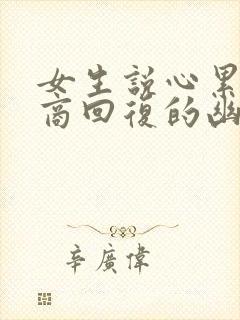 女生說心累
商回復的幽
辛廣偉